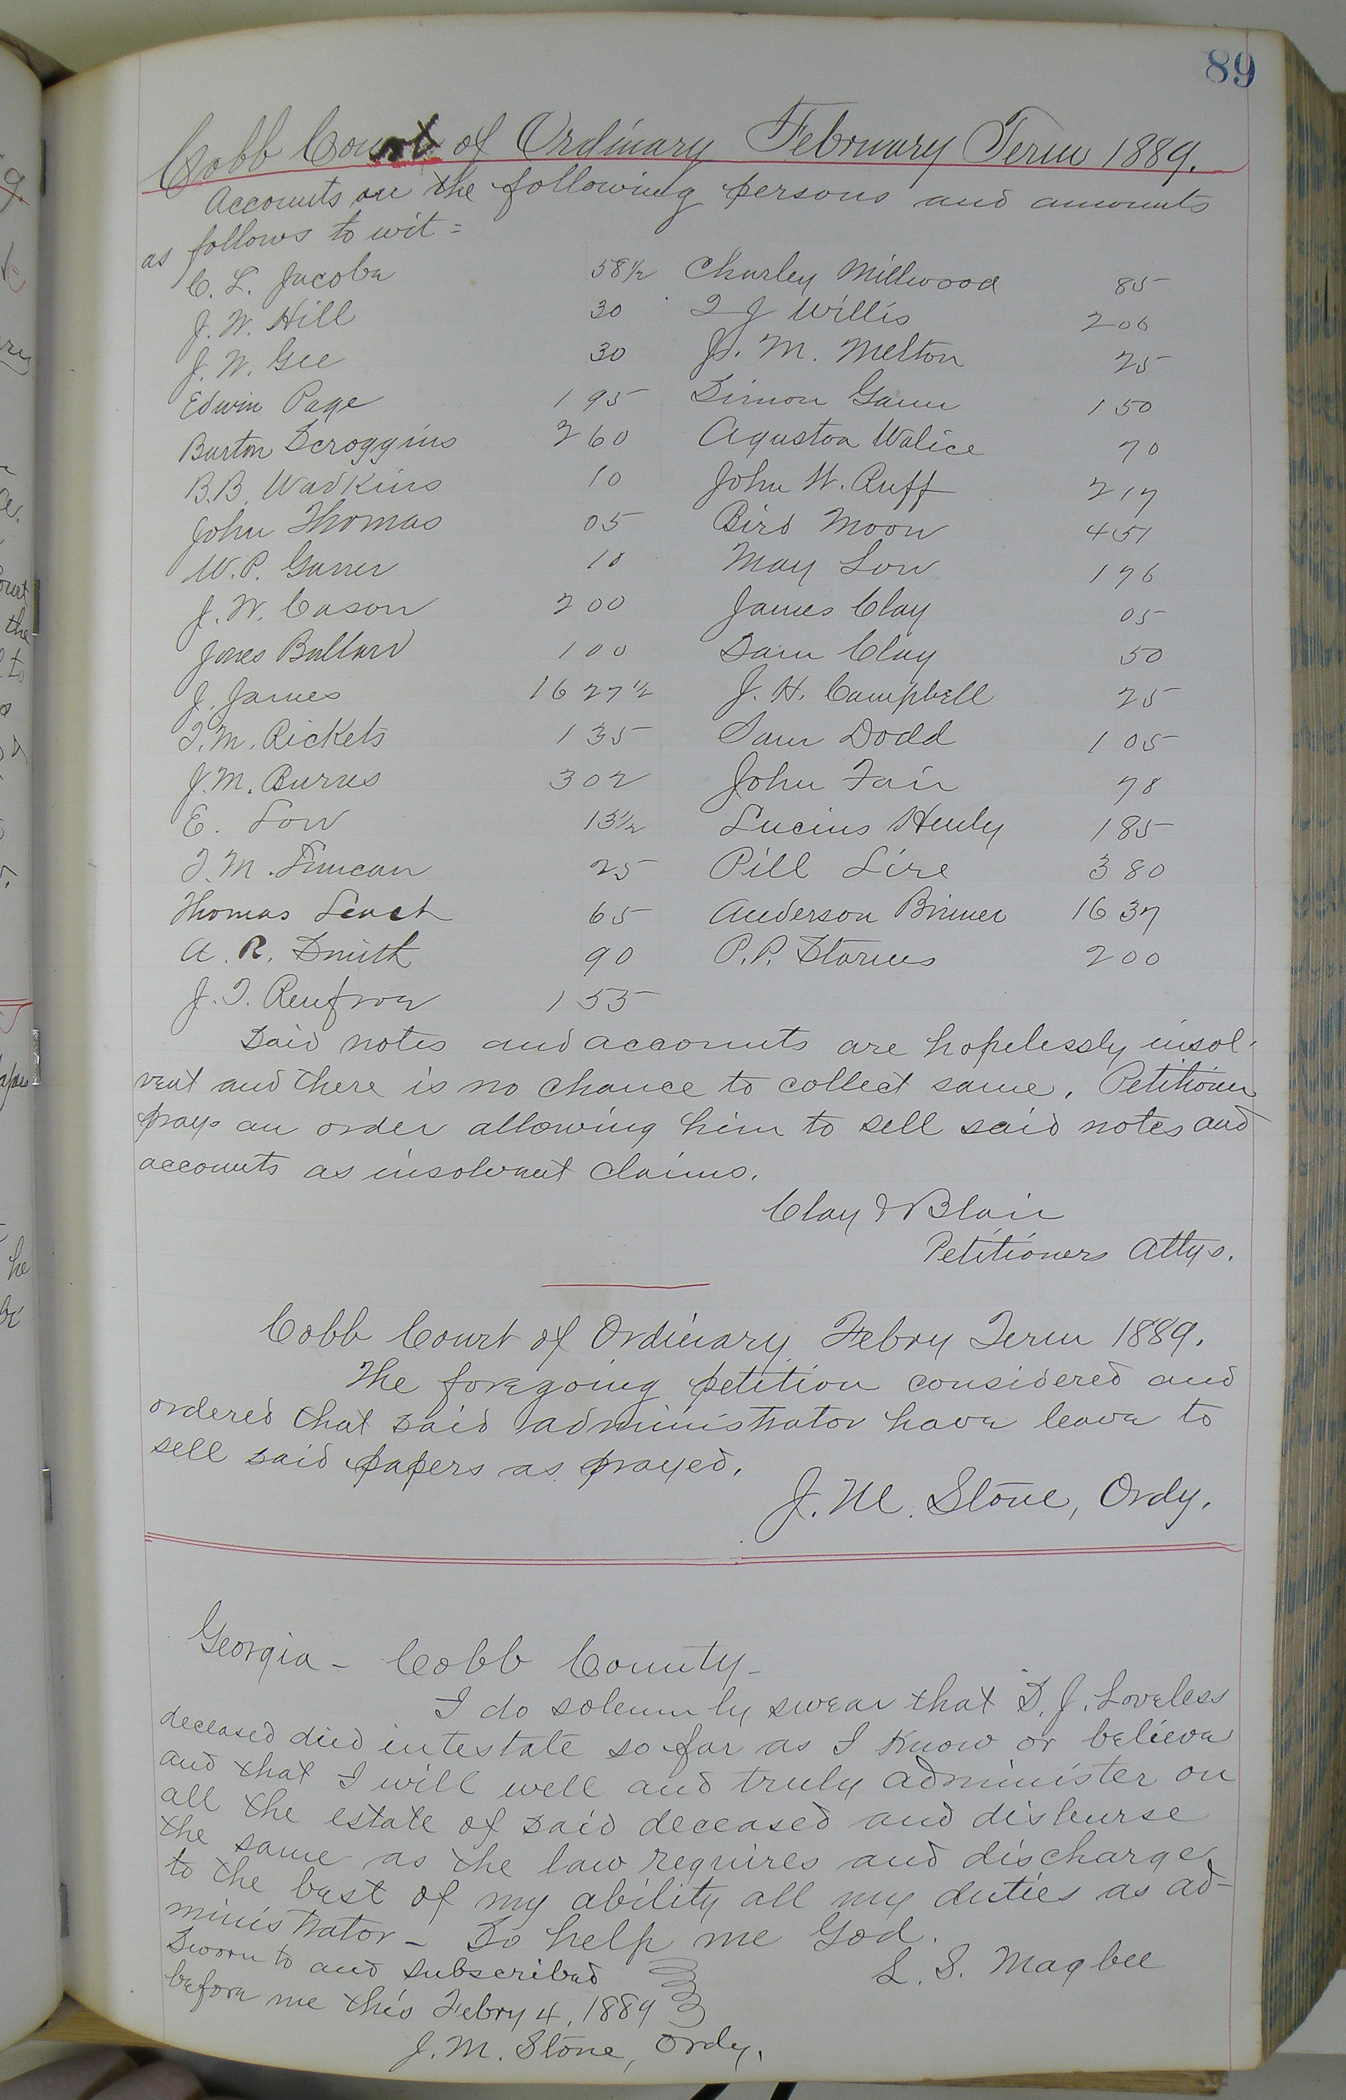 89
Cobb Court of Ordinary February Term 1889.
Accounts on the following persons and amounts
as follows to wit =
C. L. Jacobs 58½ Charley Millwood 85
J. W. Hill 30 T J Willis 200
J. W. Gee 30 J. M. Melton 25
Edwin Page 1 95 Simon Gann 1 50
Burton Scroggins 2 60 Agustoa Walice 70
B. B. Wadkins 10 John W. Ruff 2 17
John Thomas 05 Bird Moon 4 51
W. P. Garner 10 May Low 1 96
J. W. Cason 2 00 James Clay 05
Jones Ballard 1 00 Sam Clay 50
J. James 16 27½ J. H. Campbell 25
T. M. Rickets 1 35 Sam Dodd 1 05
J. M. Burns 3 02 John Fair 78
E. Low 13½ Lucius Henly 1 85
T. M. Duncan 25 Pill Sire 3 80
Thomas Leach 65 Anderson Binner 16 37
A. R. Smith 90 P. P. Starnes 2 00
J. T. Renfroe 1 55
Said notes and accounts are hopelessly insol-
vent and there is no chance to collect same. Petitioner
prays an order allowing him to sell said notes and
accounts as insolvent claims.
Clay & Blair
Petitioners Attys.
Cobb Court of Ordinary Febry Term 1889.
The foregoing petition considered and
ordered that said administrator have leave to
sell said papers as prayed.
J. M. Stone, Ordy.
Georgia - Cobb County -
I do solemnly swear that D. J. Loveless
deceased died intestate so far as I know or believe
and that I will well and truly administer on
all the estate of said deceased and disburse
the same as the law requires and discharge
to the best of my ability all my duties as ad-
ministrator - So help me God.
Sworn to and subscribed L. S. Magbee
before me this Febry 4, 1889
J. M. Stone, Ordy.